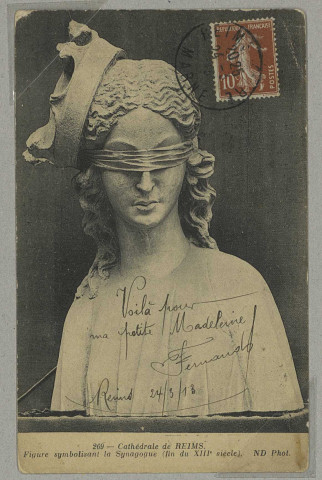 RÉPUBLIQUE FRANÇAISE
10c
POSTES
Voilà pour
ma petite Madeleine
Fernande
Reims 24/3/13
269 — Cathédrale de REIMS.
Figure symbolisant la Synagogue (fin du XIIIe siècle). ND Phot.